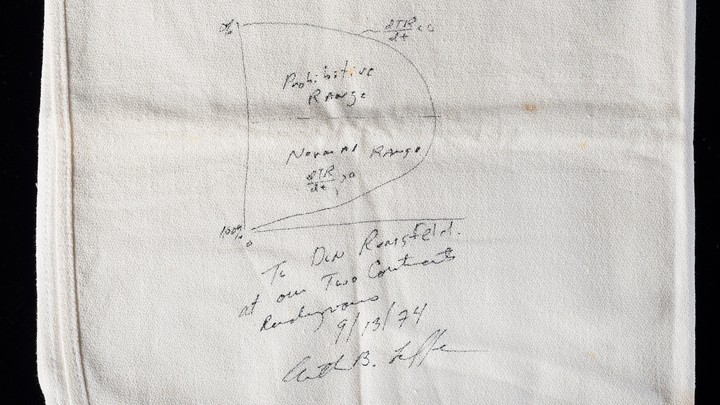 %
∂TR/∂t < 0
Prohibitive
Range
Normal Range
∂TR/∂t > 0
100%
0
To Don Rumsfeld.
at our Two Continents
Rendezvous
9/13/74
Arthur B. Laffer